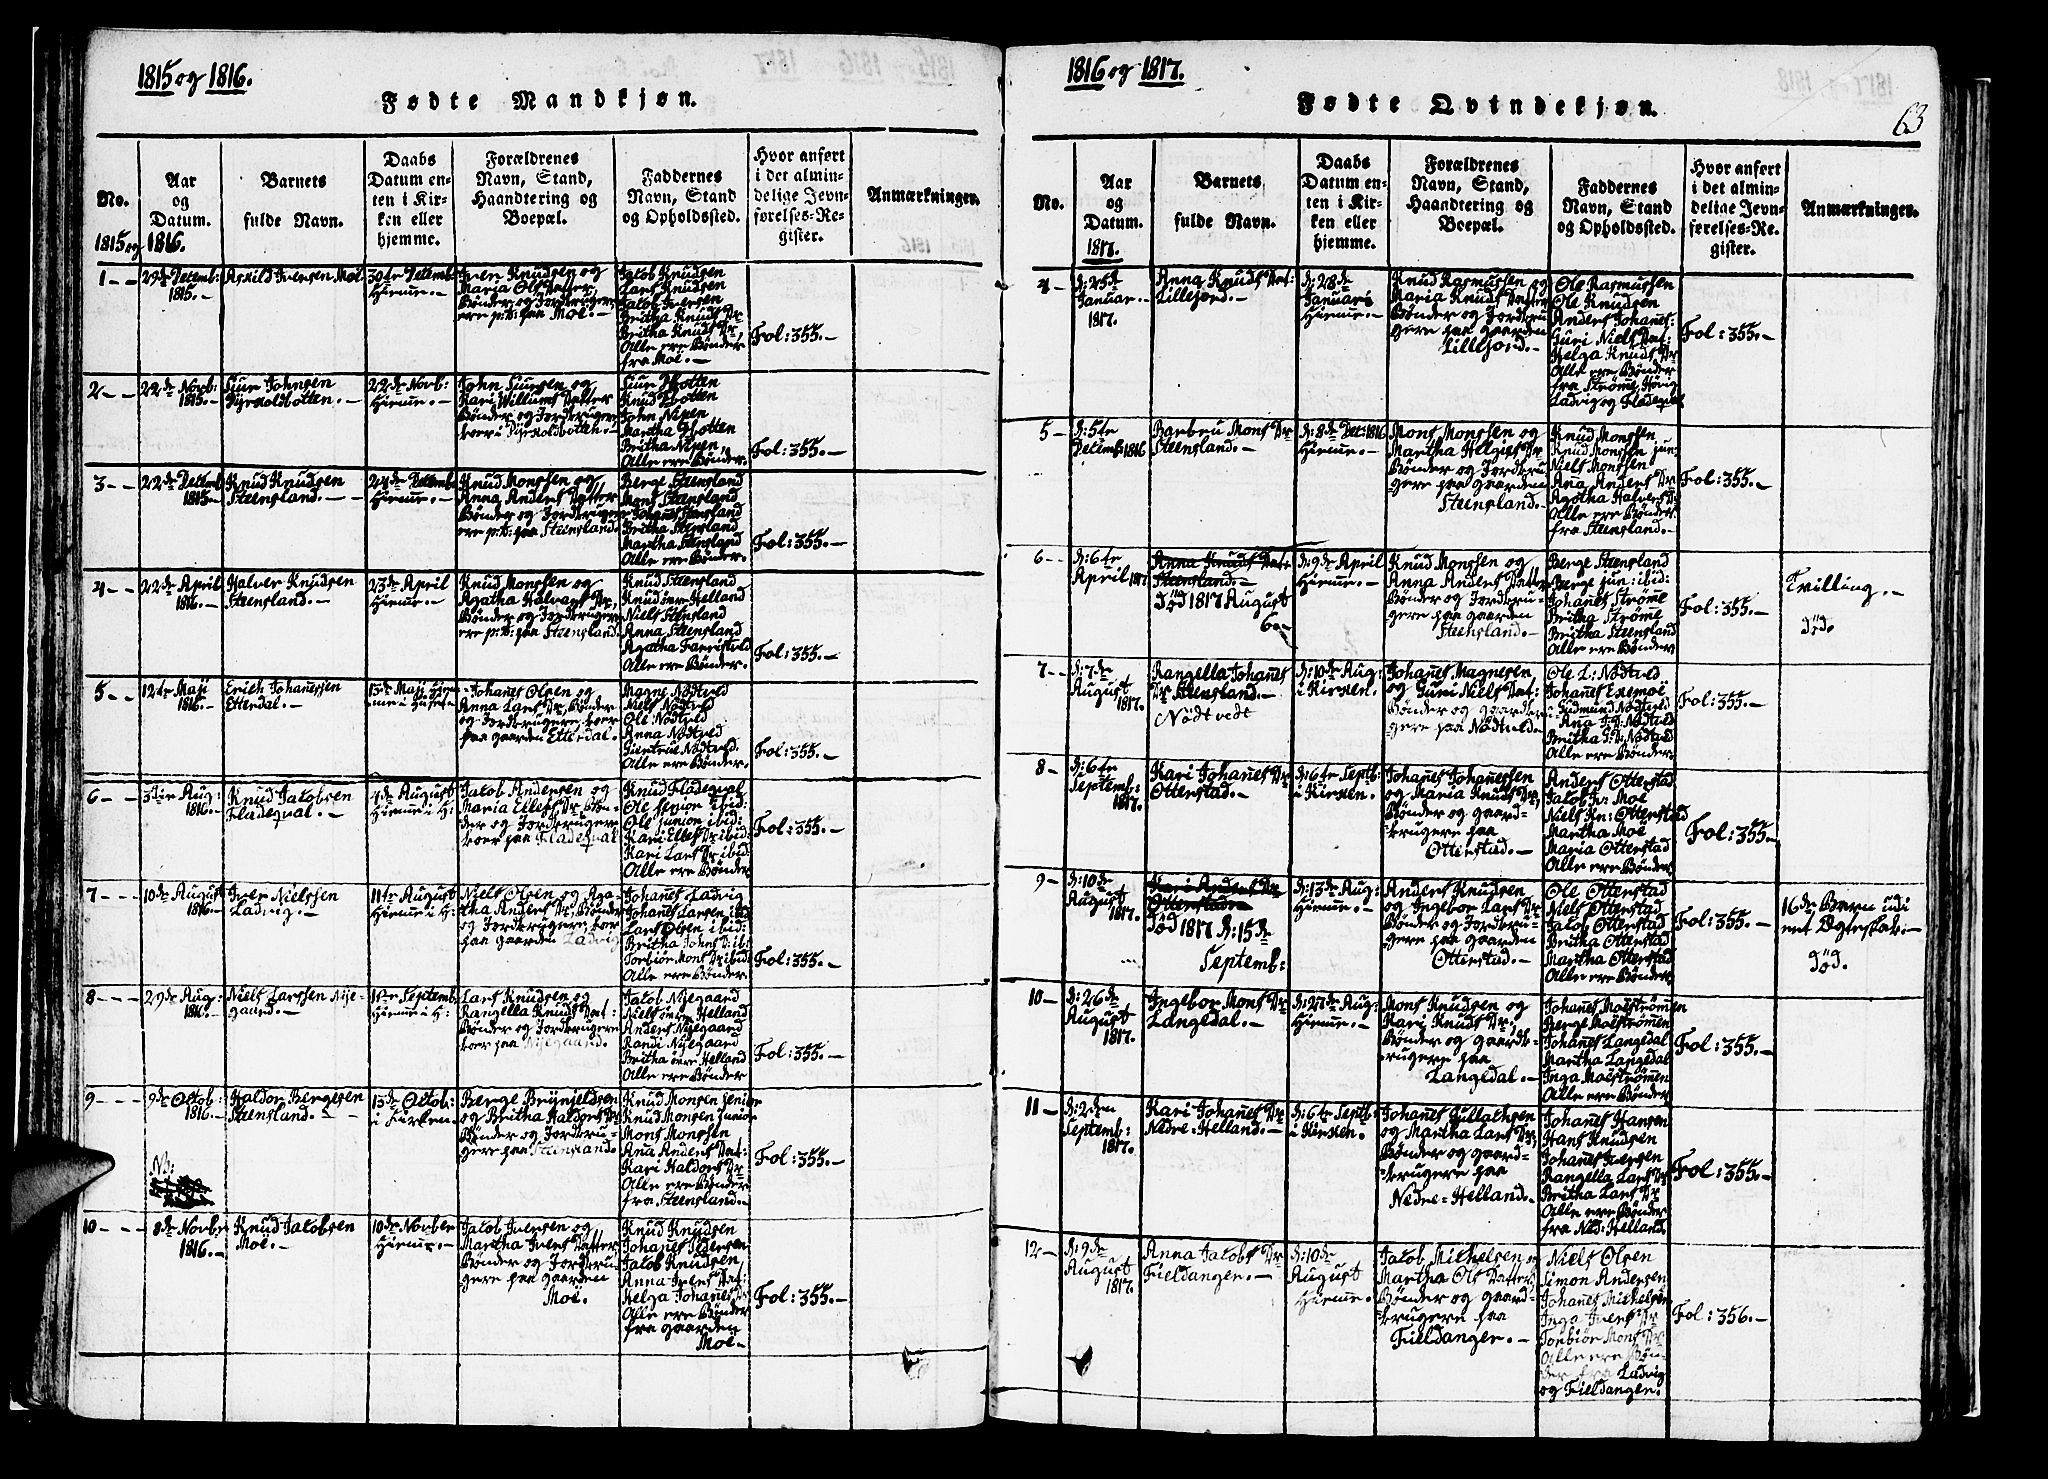 1815 og 1816.
Fødte Mandkjøn.
No.
Aar
og
Datum.
1815 og 1816.
Barnets
fulde Navn.
Daabs
Datum en-
ten i Kir-
ken eller
hjemme.
Forældrenes
Navn, Stand,
Haandtering og
Boepæl.
Faddernes
Navn, Stand
og Opholdssted.
Hvor anført
i det almin-
delige Jevn-
førelses-Re-
gister.
Anmærkninger.
1 - -
29de Decemb:
1815. -
Askild Iversen Moe
30te Decemb:
Hiemme. -
Iver Knudsen og
Maria Ols Datter,
Bønder og Jordbruger
ere p:t: paa Moe. -
Jacob Knudsen
Lars Knudsen
Jacob Iversen
Britha Knuds Dr
Britha Knuds Dr
Alle ere Bønder
fra Moe. -
Fol: 355. -
2 - -
22de Novb:
1815. -
Siur Johnsen
22de Novb:
Hiemme. -
John Siursen og
Kari Willums Datter
Bønder og Jordbruger
Siur Botten
Knud Botten
John
Martha Botten
Britha
Alle ere Bønder.
Fol: 355. -
3 - -
22de Decemb
1815 -
Knud Knudsen
Steensland. - -
24de Decemb
Hiemme. -
Knud Monssen og
Anna Anders Datter
Bønder og Jordbruger
ere p:t: paa Steensland.
Berge Steensland
Mons Steensland
Johanes Steensland
Britha Steensland
Martha Steensland
Alle ere Bønder.
Fol: 355. -
4 - -
22de April
1816. -
Halver Knudsen
Steensland. -
23de April
Hiemme. -
Knud Monssen og
Agatha Halvers Dr,
Bønder og Jordbruger
ere p:t: paa Steensland.
Knud Steensland
Knud øvre Helland
Niels Steensland
Anna Steensland
Agatha
Alle ere Bønder.
Fol: 355. -
5 - -
12te Maji
1816. -
Erich Johanessen
Etterdal. -
13de Maji
Johanes Olsen og
Anna Lars Dr, Bønder
og Jordbrugere boer
paa Gaarden Etterdal. -
Magne Nodtved
Niels Nodtved
Ole Nodtved
Anna Nodtved
Giertrue Nodtved.
Alle ere Bønder.
Fol: 355. -
6 - -
3die Aug:
1816. -
Knud Jacobsen
Fladeqval. -
4de August
Hiemme i H:
Jacob Andersen og
Maria Ellefs Dr Bøn-
der og Jordbrugere
boer paa Fladeqval
Knud Fladeqval
Ole senior ibid:
Ole junior ibid:
Kari Ellefs Dr ibid:
Kari Lars Dr ibid:
Alle ere Bønder
Fol: 355. -
7 - - -
10de August
1816. -
Iver Nielssen
Ladvig. -
11te August
Hiemme i H:
Niels Olsen og Aga-
tha Anders Dr, Bønder
og Jordbrugere, boer
paa Gaarden Ladvig
Johanes Ladvig
Johanes Larsen ibid
Lars Olsen ibid:
Britha Johns Dr ib:
Torbiør Mons Dr ibid:
Alle ere Bønder
Fol: 355. -
8 - - -
29de Aug:
1816. -
Niels Larssen Nye-
gaard. -
Septemb:
Hiemme i H:
Lars Knudsen og
Rangella Knuds Dat:
Bønder og Jordbrugere
boer paa Nyegaard.
Jacob Nyegaard
Niels øvre Helland
Anders Nyegaard
Randi Nyegaard
Britha øvre Helland
Alle ere Bønder
Fol: 355. -
9 - - -
9de Octob:
1816. -
Haldor Bergesen
Steensland. -
13de Octob:
i Kirken.
Berge Brynjeldsen
og Britha Haldors Dr
Bønder og Jordbru-
gere paa Steensland.
Knud Monsen senior
Knud Monsen junior
Mons Monssen
Ana Anders Dat:
Kari Haldors Dr
Alle ere Bønder
fra Steensland. -
Fol: 355. -
Nb:
10 - - -
8de Novbr
1816. -
Knud Jacobsen
Moe. -
10de Novber
Hiemme. -
Jacob Iversen og
Martha Ivers Datter
Bønder og Jordbru-
gere paa Gaarden
Moe.
Knud Knudsen
Johanes Pedersen
Jacob Knudsen
Anna Ivers Dat:
Helga Johanes Dr
Alle ere Bønder
fra Gaarden
Moe -
Fol: 355. -
1816 og 1817.
Fødte Qvindekjøn.
63
No.
Aar
og
Datum.
1817.
Barnets
fulde Navn.
Daabs
Datum en-
ten i Kir-
ken eller
hjemme.
Forældrenes
Navn, Stand,
Haandtering og
Boepæl.
Faddernes
Navn, Stand
og Opholdssted.
Hvor anført
i det almin-
delige Jevn-
førelses-Re-
gister.
Anmærkninger.
4 -
d: 25de
Januar. -
1817.
Anna Knuds Dat:
Lillejord. -
d: 28de
Januari
Hiemme. -
Knud Rasmussen og
Maria Knuds Datter
Bønder og Jordbru-
gere paa Gaarden
Lillejord. -
Ole Rasmussen
Ole Knudsen
Anders Johanes:
Guri Niels Dat:
Helga Knuds Dr
Alle ere Bønder
fra Strøme,
Ladvig og Fladeqval
Fol: 355. -
5 -
d: 5te
Decemb: 1816
Barbru Mons Dr
Steensland. -
d: 8de Dec: 1816
Hiemme. -
Mons Monssen og
Martha Helgies Dr
Bønder og Jordbru-
gere paa Gaarden
Steensland. -
Knud Monssen
Knud Monssen jun:
Niels Monssen
Ana Anders Dr
Agatha Halvers Dr
Alle ere Bønder
fra Steensland. -
Fol: 355. -
6 - -
d: 6te
April 1817
Anna Knuds Datr
Steensland. -
Død 1817 August
6. -
d: 9de April
Hiemme. -
Knud Monssen og
Anna Anders Datter
Bønder og Jordbru-
gere paa Gaarden
Steensland. -
Berge Steensland
Berge jun: ibid:
Johanes Strøme
Britha Strøme
Britha Steensland
Alle ere Bønder
Fol: 355. -
Tvilling. -
død.
7 -
d: 7de
August
1817.
Rangella Johanes
Dr Steensland. -
Nodtvedt
d: 10de Aug:
i Kirken. -
Johanes Magnesen
og Guri Niels Dat:
Bønder og Gaardbru-
gere paa Nodtved. -
Ole L: Nodtved
Johanes Exemoe
Gudmund Nodtved
Ana J: D: Nodtved
Britha J: D: Nodtved
Alle ere Bønder.
Fol: 355. -
8 -
d: 6te
Septemb:
1817.
Kari Johanes Dr
Otterstad. -
d: 6te Septb:
i Kirken. -
Johanes Johanessen
og Maria Knuds Dr,
Bønder og Gaard-
brugere paa
Otterstad. -
Anders Otterstad
Jacob Iv: Moe
Niels Kn: Otterstad
Martha Moe
Maria Otterstad
Alle ere Bønder.
Fol: 355. -
9 -
d: 10de
August
1817.
Kari Anders Dr
Otterstad. -
Død 1817 d: 15de
Septemb:
d: 13de Aug:
Hiemme. -
Anders Knudsen
og Ingebor Lars Dr
Bønder og Jordbru-
gere paa Gaarden
Otterstad. -
Ole Otterstad
Niels Otterstad
Jacob Otterstad
Britha Otterstad
Martha Otterstad
Alle ere Bønder.
Fol: 355. -
16de Barn udi
eet Ægteskab. -
død.
10 -
d: 26de
August
1817.
Ingebor Mons Dr
Langedal. -
d: 27de Aug:
Hiemme. -
Mons Knudsen og
Kari Knuds Dr,
Bønder og Gaardb-
rugere paa
Langedal. -
Johanes Moestrømmen
Berge Moestrømmen
Johanes Langedal
Martha Langedal
Inga Moestrømmen
Alle ere Bønder
Fol: 355. -
11 -
d: 2den
Septemb:
1817.
Kari Johanes Dr
Nedre-Helland. -
d: 6te Septb:
i Kirken. -
Johanes Gullachsen
og Martha Lars Dr
Bønder og Gaard-
brugere paa
Nedre-Helland. -
Johanes Hansen
Hans Knudsen
Johanes Iversen
Rangella Lars Dr
Britha Lars Dr
Alle ere Bønder
fra Ned: Helland.
Fol: 355. -
12 -
d: 9de
August
1817.
Anna Jacobs Dr
Fieldanger. -
d: 10de
August
Hiemme. -
Jacob Michelsen og
Martha Ols Datter
Bønder og Gaard-
brugere paa
Fieldanger. -
Niels Olsen
Simon Andersen
Johanes Michelsen
Inga Ivers Dr
Torbiør Mons Dr
Alle ere Bøn-
der fra Ladvig
og Fieldanger.
Fol: 356. -